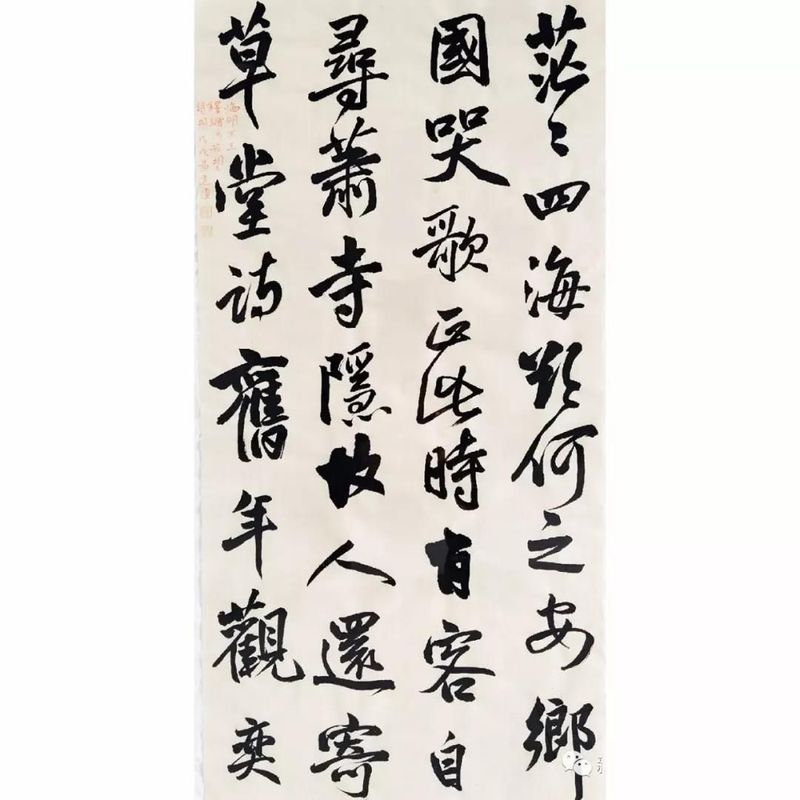 茫〻四海何之安鄉
國哭歌正此時有客自
尋蕭寺隱故人還寄
草堂詩舊年觀奕